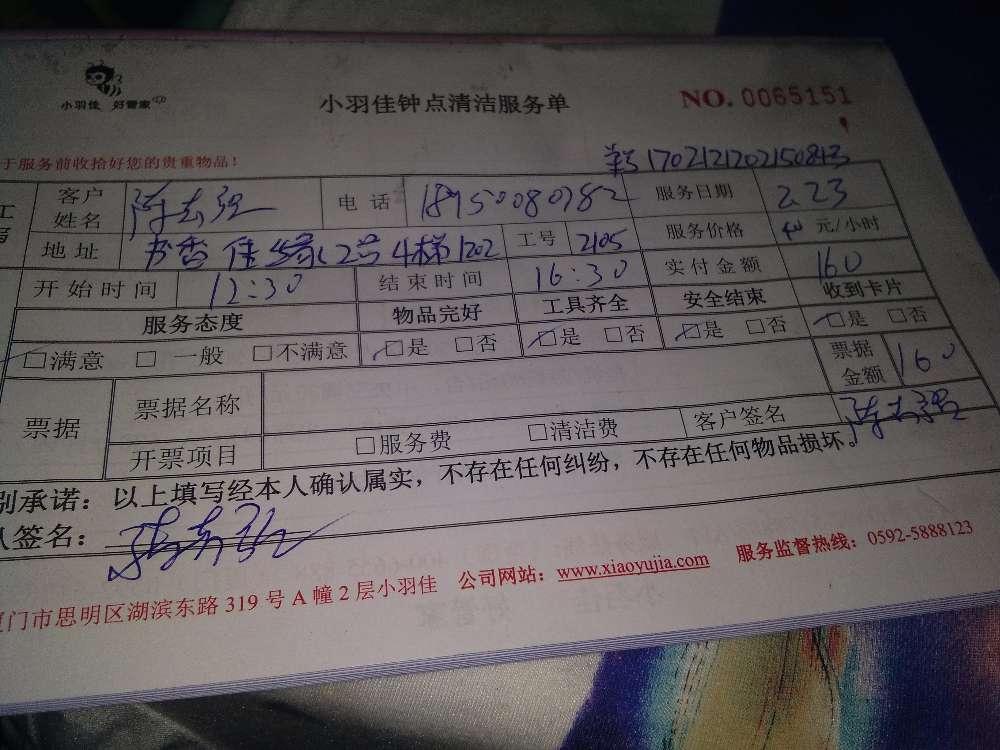 小羽佳 好管家
小羽佳钟点清洁服务单
NO. 0065151
于服务前收拾好您的贵重物品！
170212170215084
客户姓名 电话 服务日期 2.23
地址 书香佳缘 2号4梯1202 工号 2105 服务价格 40 元/小时
开始时间 12:30 结束时间 16:30 实付金额 160
服务态度 物品完好 工具齐全 安全结束 收到卡片
□满意 □一般 □不满意 □是 □否 □是 □否 □是 □否 □是 □否
票据 票据名称 票据金额 160
开票项目 □服务费 □清洁费 客户签名
别承诺：以上填写经本人确认属实，不存在任何纠纷，不存在任何物品损坏。
人签名：
厦门市思明区湖滨东路 319 号 A 幢 2 层小羽佳 公司网站：www.xiaoyujia.com 服务监督热线：0592-5888123